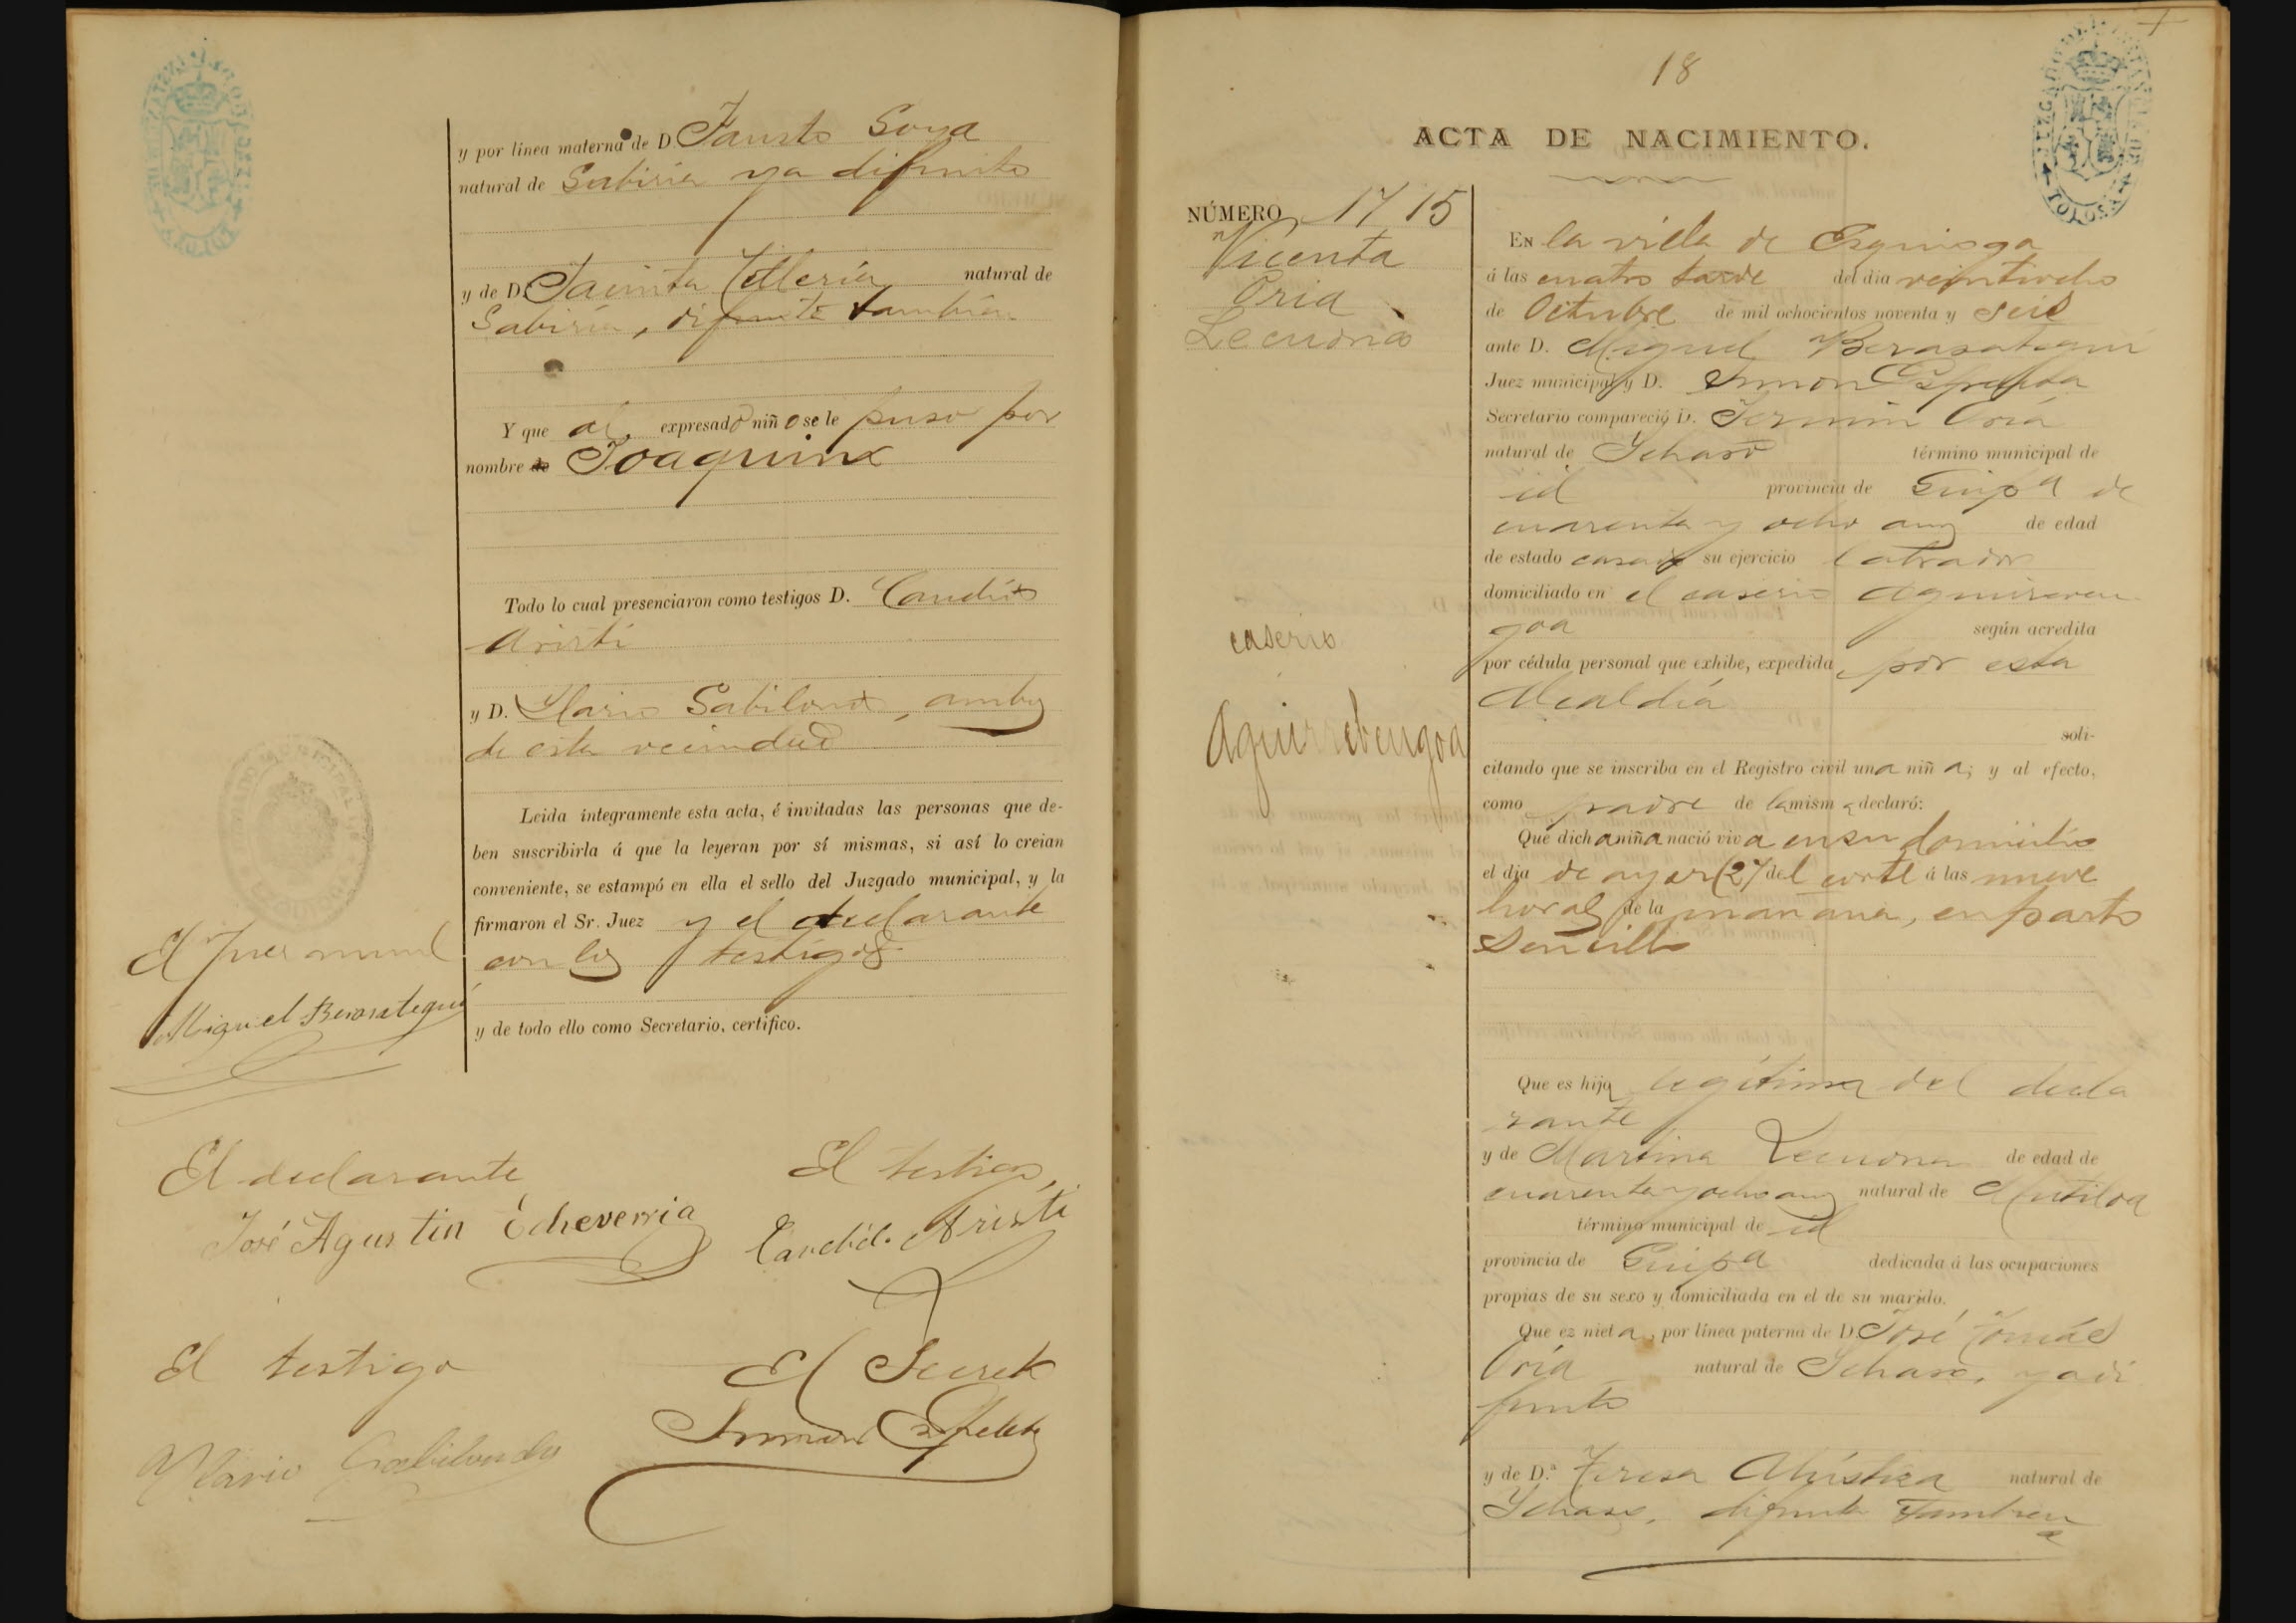 y por línea materna de D. Fausto Soya
natural de Gabiria ya difunto
y de D. Jacinta Tellería natural de
Gabiria, difunta también
Y que al expresado niño se le puso por
nombre de Joaquin
Todo lo cual presenciaron como testigos D. Candido
Aristi
y D. Ylario Gabilondo, ambos
de esta vecindad
Leida íntegramente esta acta, é invitadas las personas que de-
ben suscribirla á que la leyeran por sí mismas, si así lo creian
conveniente, se estampó en ella el sello del Juzgado municipal, y la
firmaron el Sr. Juez y el declarante
con los testigos
y de todo ello como Secretario, certifico.
El Juez munl
Miguel Berasategui
El declarante
José Agustin Echeverria
El testigo,
Candido Aristi
El testigo
Ylario Gabilondo
El Secreto
Simon Ezpeleta
18
ACTA DE NACIMIENTO.
NÚMERO 1715
Vicenta
Oria
Lecuona
caserio
Aguirrebengoa
En la villa de Ezquioga
á las cuatro tarde del dia veintiocho
de Octubre de mil ochocientos noventa y seis
ante D. Miguel Berasategui
Juez municipal y D. Simon Ezpeleta
Secretario compareció D. Fermin Oria
natural de Ychaso término municipal de
id provincia de Guipa de
cuarenta y ocho años de edad
de estado casado su ejercicio labrador
domiciliado en el caserio Aguireven
goa según acredita
por cédula personal que exhibe, expedida por esta
Alcaldía
soli-
citando que se inscriba en el Registro civil una niña; y al efecto,
como padre de la misma declaró:
Que dicha niña nació viva en su domicilio
el dia de ayer (27 del corte á las nueve
horas de la mañana, en parto
sencillo
Que es hija legítima del decla
rante
y de Martina Lecuona de edad de
cuarenta y ocho años natural de Mutiloa
término municipal de id
provincia de Guipa dedicada á las ocupaciones
propias de su sexo y domiciliada en el de su marido.
Que ez nieta, por línea paterna de D. José Tomás
Oria natural de Ychaso, ya di
funto
y de D.ª Teresa natural de
Ychaso, difunta tambien